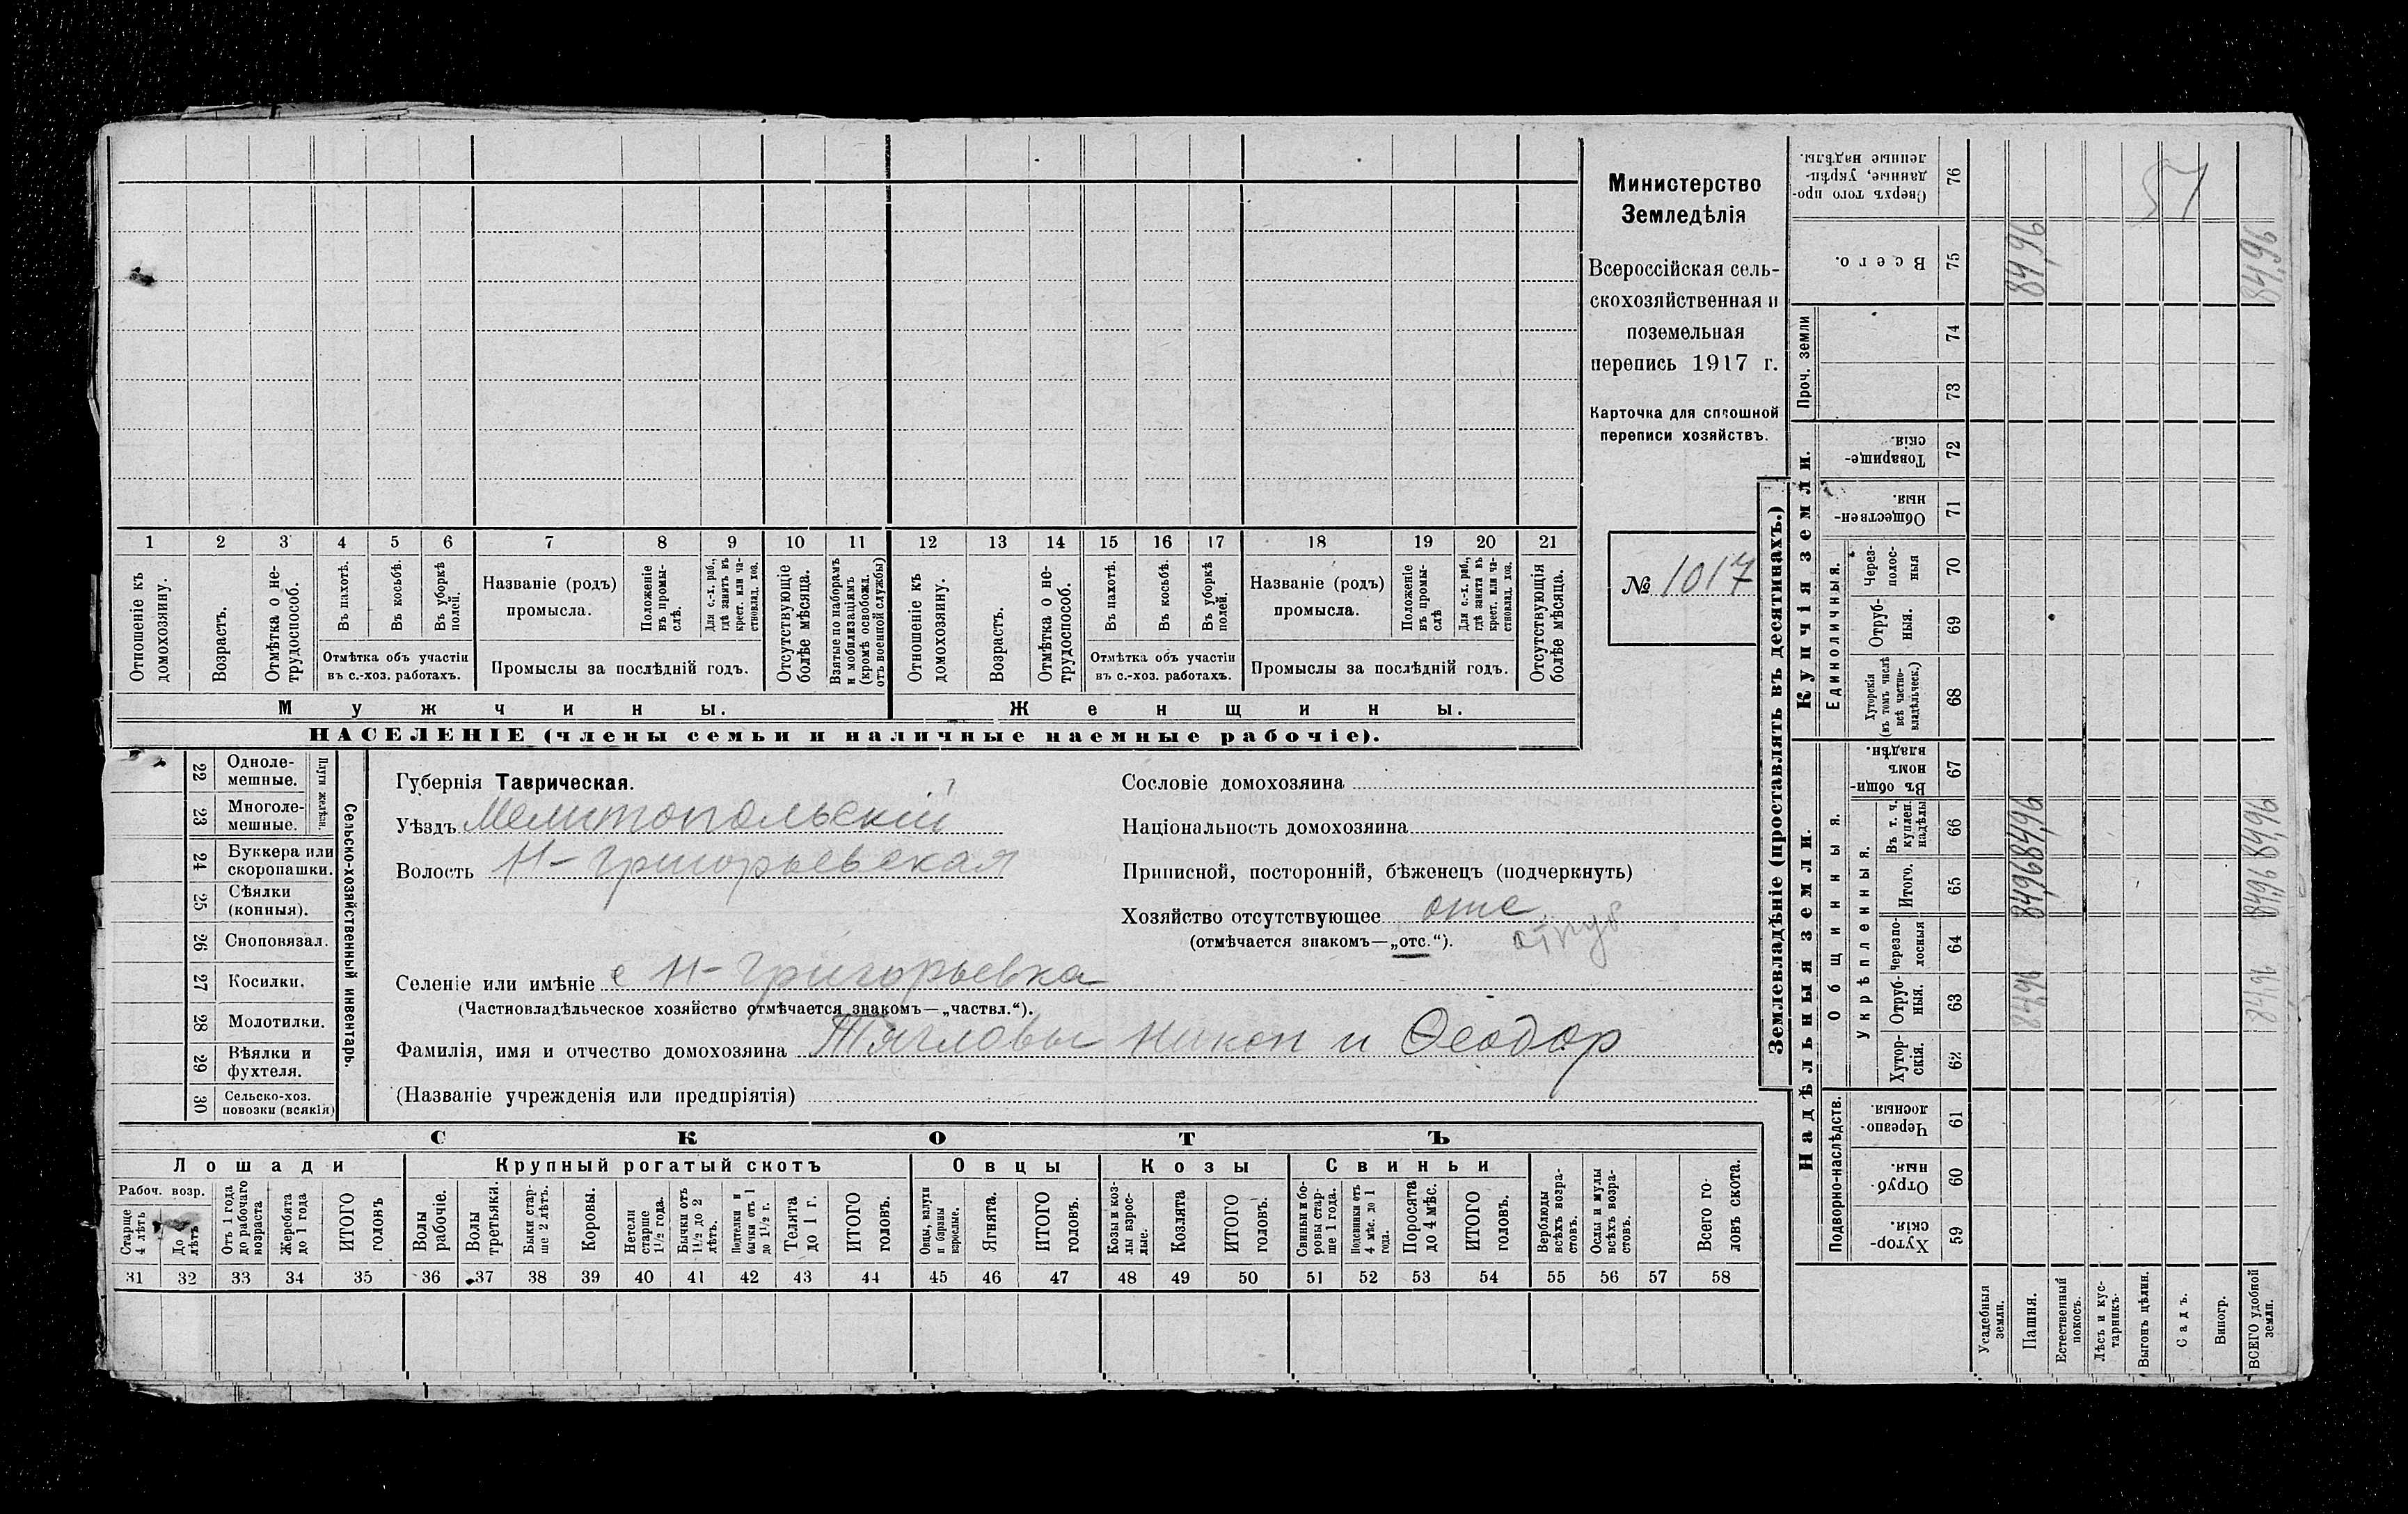 1 2 3 4 5 6 7 8 9 10 11 12 13 14 15 16 17 18 19 20 21
Отношеніе къ домохозяину.
Возрастъ.
Отмѣтка о не-
трудоспособ.
Въ пахотѣ.
Въ косьбѣ.
Въ уборкѣ
полей.
Отмѣтка объ участіи
въ с.-хоз. работахъ.
Названіе (родъ)
промысла.
Положеніе
въ промы-
слѣ.
Для с.-х. раб.,
гдѣ занятъ въ
крест. или ча-
стновлад. хоз.
Промыслы за послѣдній годъ.
Отсутствующіе
болѣе мѣсяца.
Взятые по наборамъ
и мобилизаціямъ
(кромѣ освобожд.
отъ военной службы)
Отношеніе къ
домохозяину.
Возрастъ.
Отмѣтка о не-
трудоспособ.
Въ пахотѣ.
Въ косьбѣ.
Въ уборкѣ
полей.
Отмѣтка объ участіи
въ с.-хоз. работахъ.
Названіе (родъ)
промысла.
Положеніе
въ промы-
слѣ
Для с.-х. раб.,
гдѣ занята въ
крест. или ча-
стновлад. хоз.
Промыслы за послѣдній годъ.
Отсутствующія
болѣе мѣсяца.
Мужчины.
Женщины.
НАСЕЛЕНІЕ (члены семьи и наличные наемные рабочіе).
Министерство
Земледѣлія
Всероссійская сель-
скохозяйственная и
поземельная
перепись 1917 г.
Карточка для сплошной
переписи хозяйствъ.
№ 1017
22 Одноле-
мешные.
23 Многоле-
мешные.
Плуги желѣзн.
24 Буккера или
скоропашки.
25 Сѣялки
(конныя).
26 Сноповязал.
27 Косилки.
28 Молотилки.
29 Вѣялки и
фухтеля.
30 Сельско-хоз.
повозки (всякія)
Сельско-хозяйственный инвентарь.
Губернія Таврическая.
Уѣздъ Мелитопольскій
Волость Н-Григорьевская
Селеніе или имѣніе с Н-Григорьевка
(Частновладѣльческое хозяйство отмѣчается знакомъ—„частвл.“).
Фамилія, имя и отчество домохозяина Тягловы Никон и Ѳеодор
(Названіе учрежденія или предпріятія)
Сословіе домохозяина
Національность домохозяина
Приписной, посторонній, бѣженецъ (подчеркнуть)
Хозяйство отсутствующее отс
(отмѣчается знакомъ—„отс.“).
отруб
СКОТЪ
Лошади
Рабоч. возр.
Старше
4 лѣтъ
До
лѣтъ
Отъ 1 года
до рабочаго
возраста
Жеребята
до 1 года
ИТОГО
головъ
Крупный рогатый скотъ
Волы
рабочіе.
Волы
третьяки.
Быки стар-
ше 2 лѣтъ.
Коровы.
Нетели
старше
1½ года.
Бычки отъ
1½ до 2
лѣтъ.
Подтелки и
бычки отъ 1
до 1½ г.
Телята
до 1 г.
ИТОГО
головъ.
Овцы
Овцы, валухи
и бараны
взрослые.
Ягнята.
ИТОГО
головъ.
Козы
Козы и коз-
лы взрос-
лые.
Козлята
ИТОГО
головъ.
Свиньи
Свиньи и бо-
ровы стар-
ше 1 года.
Подсвинки отъ
4 мѣс. до 1
года.
Поросята
до 4 мѣс.
ИТОГО
головъ.
Верблюды
всѣхъ возра-
стовъ.
Ослы и мулы
всѣхъ возра-
стовъ.
Всего го-
ловъ скота.
31 32 33 34 35 36 37 38 39 40 41 42 43 44 45 46 47 48 49 50 51 52 53 54 55 56 57 58
Землевладѣніе (проставлять въ десятинахъ.)
Надѣльныя земли.
Купчія земли.
Проч. земли
Подворно-наслѣдств.
Общинныя.
Укрѣпленныя.
Единоличныя.
Сверхъ того про-
данные, укрѣп-
ленные надѣлы.
76
51
Всего.
75
84,96
84,96
74
73
Товарище-
скія.
72
Обществен-
ныя.
71
Через-
полос-
ныя
70
Отруб-
ныя.
69
Хуторскія
(въ томъ числѣ
всѣ частно-
владѣльческ.)
68
Въ общи-
номъ
владѣн.
67
Въ т. ч.
куплен.
надѣлы
66
84,96
84,96
Итого.
65
84,96
84,96
Черезпо-
лосныя
64
Отруб-
ныя.
63
84,96
84,96
Хутор-
скія.
62
Черезпо-
лосныя.
61
Отруб-
ныя.
60
Хутор-
скія.
59
Усадебныя
земли.
Пашня.
Естественный
покосъ.
Лѣсъ и кус-
тарникъ.
Выгонъ цѣлин.
Садъ.
Виногр.
ВСЕГО удобной
земли.